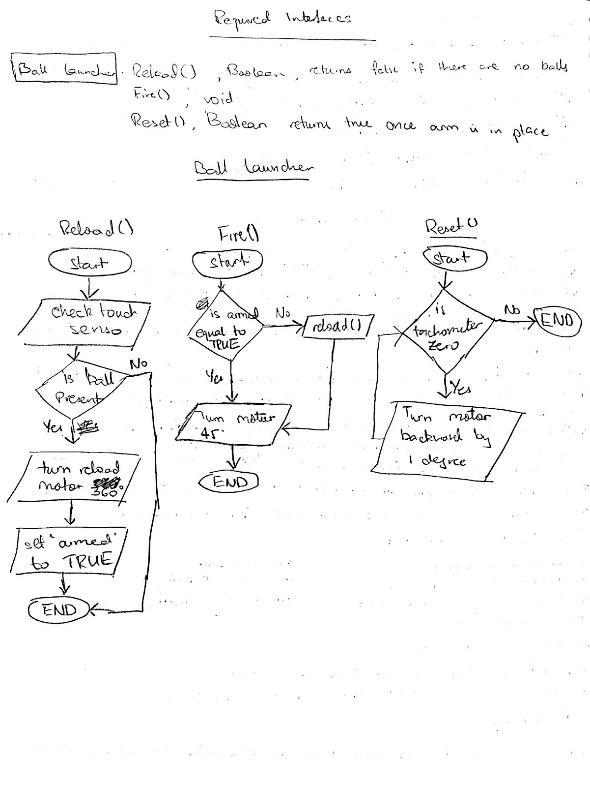 Required Interfaces
Ball launcher. Reload(), Boolean, returns false if there are no balls
Fire(), void
Reset(), Boolean returns true once arm is in place
Ball Launcher
Reload()
Start
Check touch
senso
Is ball
Present
No
Yes
turn reload
motor 360°
set 'armed'
to TRUE
END
Fire()
Start
is armed
equal to
TRUE
No
reload()
Yes
Turn motor
45°
END
Reset()
Start
is
tachometer
zero
No
END
Yes
Turn motor
backward by
1 degree